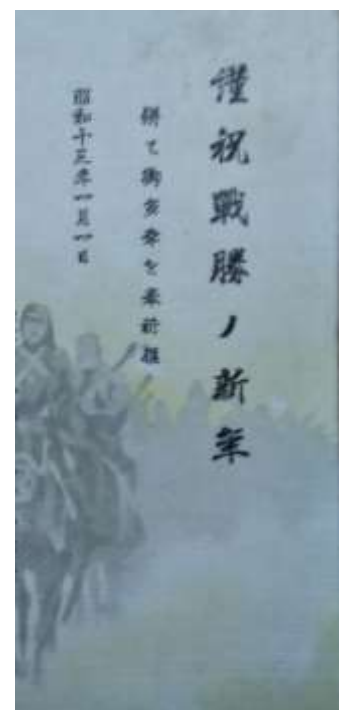 謹祝戰勝ノ新年
併て御多幸を奉祈程
昭和十三年一月一日